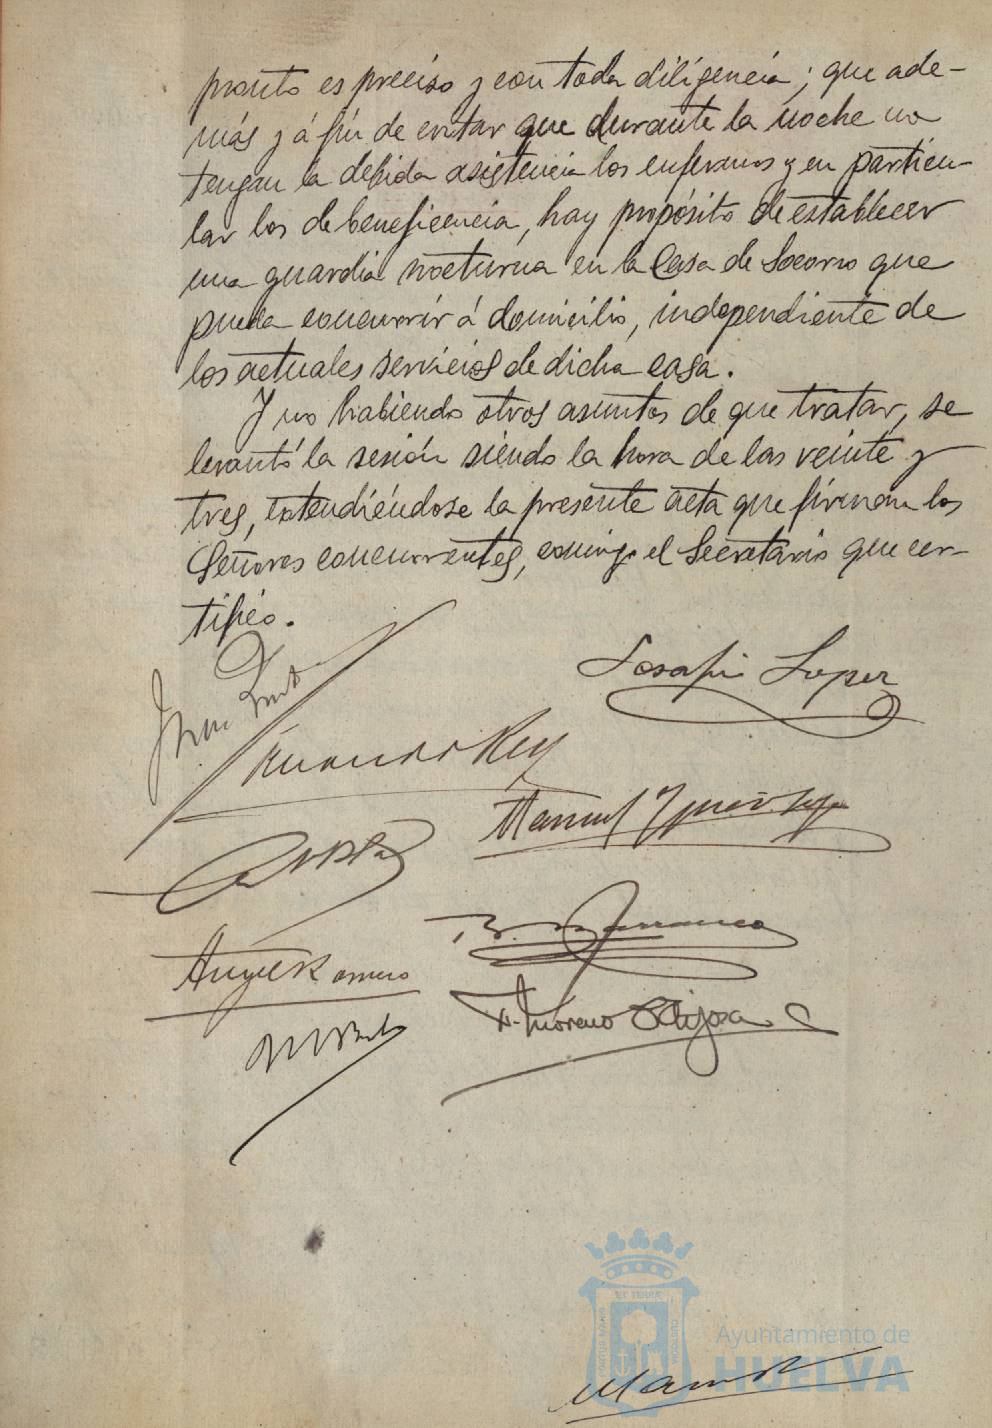 pronto es preciso y con toda diligencia; que ade-
más y á fin de evitar que durante la noche no
tengan la debida asistencia los enfermos y en particu-
lar los de beneficencia, hay propósito de establecer
una guardia nocturna en la Casa de Socorro que
pueda concurrir á domicilio, independiente de
los actuales servicios de dicha casa.
Y no habiendo otros asuntos de que tratar, se
levantó la sesión siendo la hora de las veinte y
tres, extendiéndose la presente acta que firman los
Señores concurrentes, conmigo el Secretario que cer-
tifico.
López
Rey
Manuel
Angel Romero
F. Moreno
ET TERRÆ
CUSTODIA
Ayuntamiento de
HUELVA